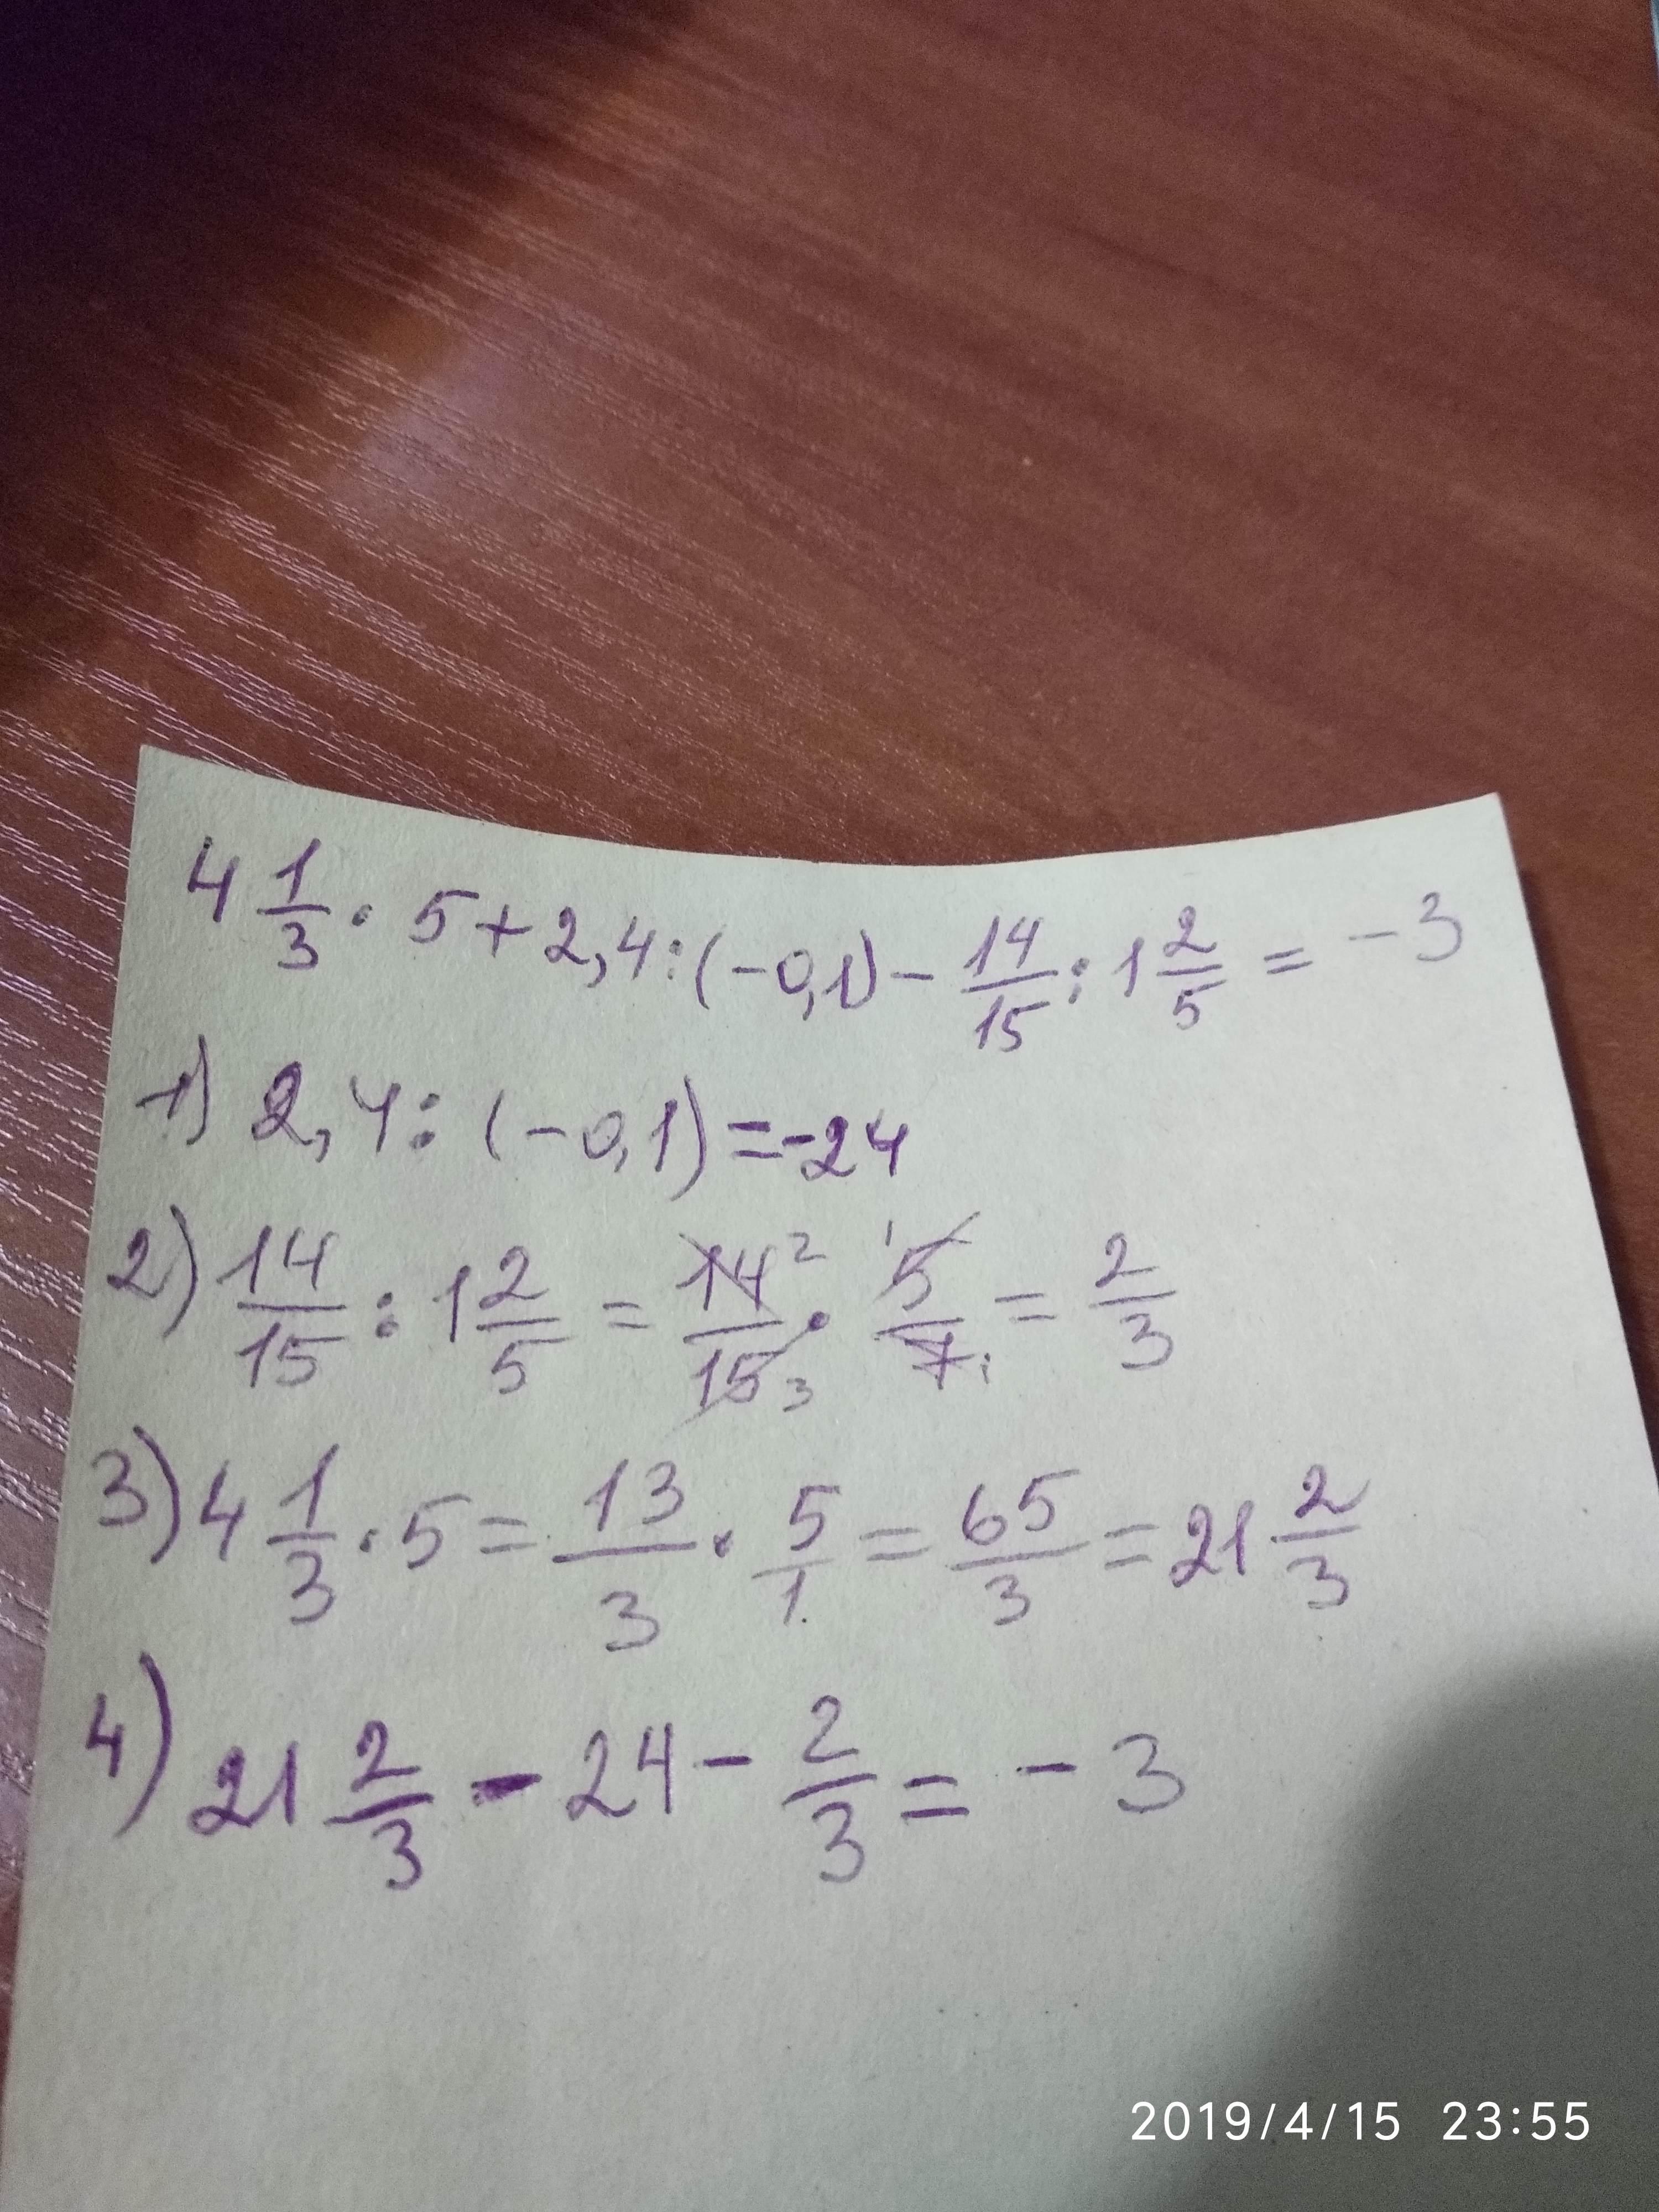 4 1/3 · 5 + 2,4 : (-0,1) - 14/15 : 1 2/5 = -3
1) 2,4 : (-0,1) = -24
2) 14/15 : 1 2/5 = 14 2/15 3 · 1 5/7 1 = 2/3
3) 4 1/3 · 5 = 13/3 · 5/1 = 65/3 = 21 2/3
4) 21 2/3 - 24 - 2/3 = -3
2019/4/15 23:55